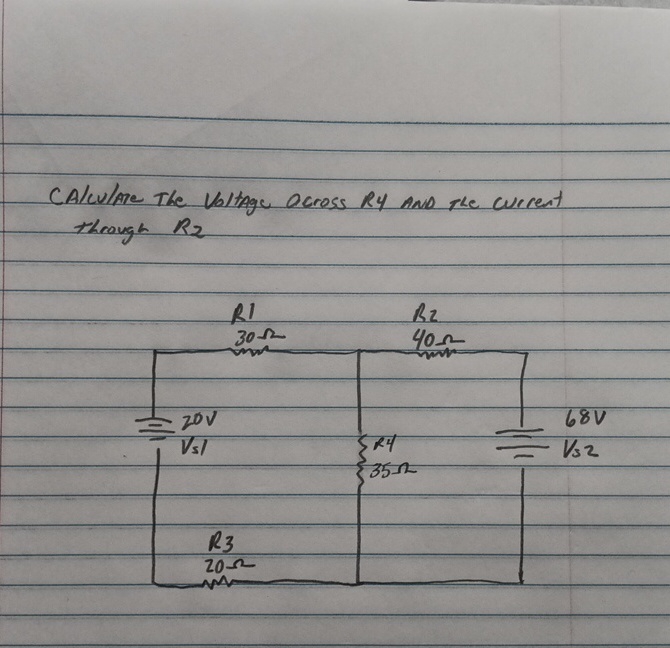 CAlculate The Voltage Across R4 AND The current
through R2
R1
30Ω
R2
40Ω
20V
Vs1
R4
35Ω
68V
Vs2
R3
20Ω